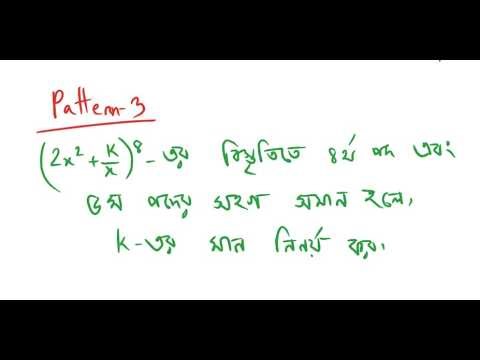 Pattern-3
(2x² + k/x)⁸ - এর বিস্তৃতিতে ৪র্থ পদ এবং
৫ম পদের সহগ সমান হলে,
k-এর মান নির্নয় কর।